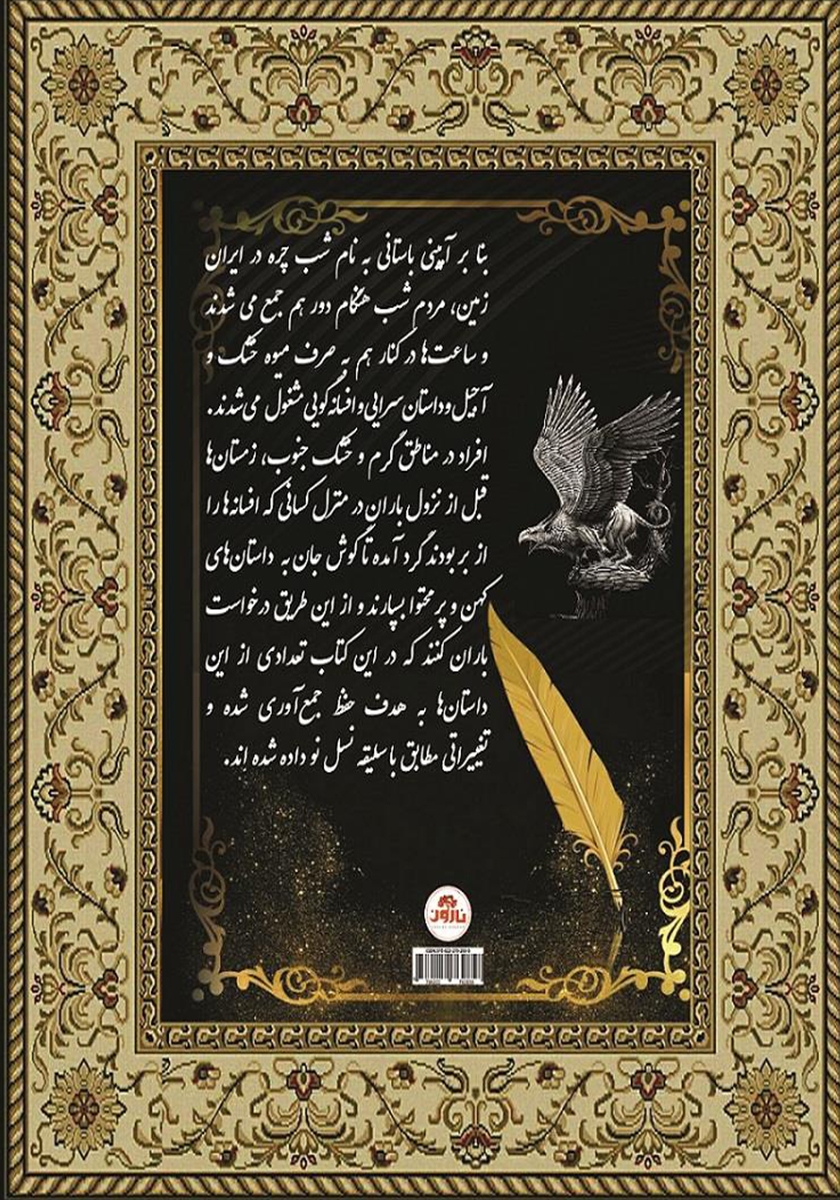 بنا بر آیینی باستانی به نام شب چره در ایران
زمین، مردم شب هنگام دور هم جمع می شدند
و ساعت‌ها در کنار هم به صرف میوه خشک و
آجیل و داستان سرایی و افسانه گویی مشغول می‌شدند.
افراد در مناطق گرم و خشک جنوب، زمستان‌ها
قبل از نزول باران در منزل کسانی که افسانه‌ها را
از بر بودند گرد آمده تا گوش جان به داستان‌های
کهن و پر محتوا بسپارند و از این طریق درخواست
باران کنند که در این کتاب تعدادی از این
داستان‌ها به هدف حفظ جمع‌آوری شده و
تغییراتی مطابق با سلیقه نسل نو داده شده اند.
نارون